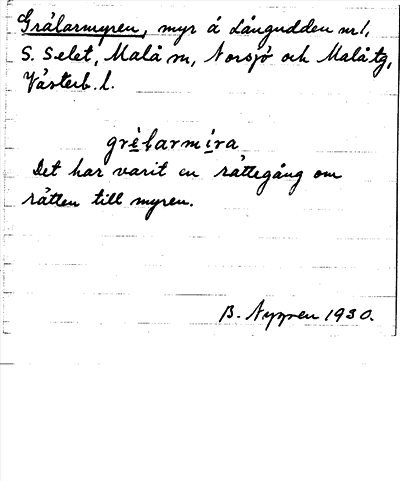 Grälarmyren, myr å Långudden nr 1,
S. Selet, Malå sn, Norsjö och Malå tg,
Västerb. l.
grèlarmíra
Det har varit en rättegång om
rätten till myren.
B. Nygren 1930.